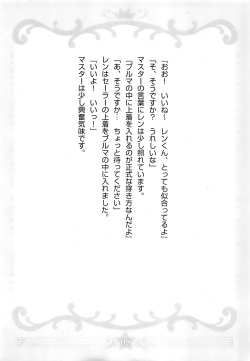 『おお！ いいね～ レンくん、とっても似合ってるよ』
「そ、そうですか？ うれしいな」
マスターの言葉にレンは少し照れています。
『ブルマの中に上着を入れるのが正式な穿き方なんだよ』
「あ、そうですか… ちょっと待ってください」
レンはセーラーの上着をブルマの中に入れました。
『いいよ！ いいっ！』
マスターは少し興奮気味です。